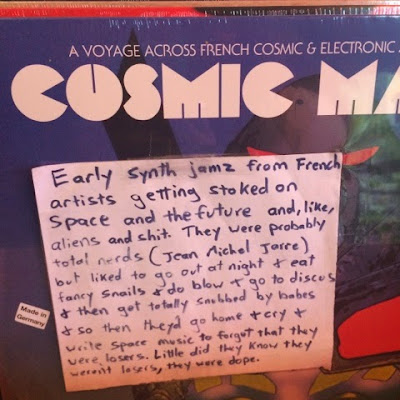 A VOYAGE ACROSS FRENCH COSMIC & ELECTRONIC
COSMIC MA
Early synth jamz from French
artists getting stoked on
space and the future and, like,
aliens and shit. They were probably
total nerds (Jean Michel Jarre)
but liked to go out at night + eat
fancy snails + do blow + go to discos
+ then get totally snubbed by babes
+ so then they'd go home + cry +
write space music to forget that they
were losers. Little did they know they
weren't losers, they were dope.
Made in
Germany